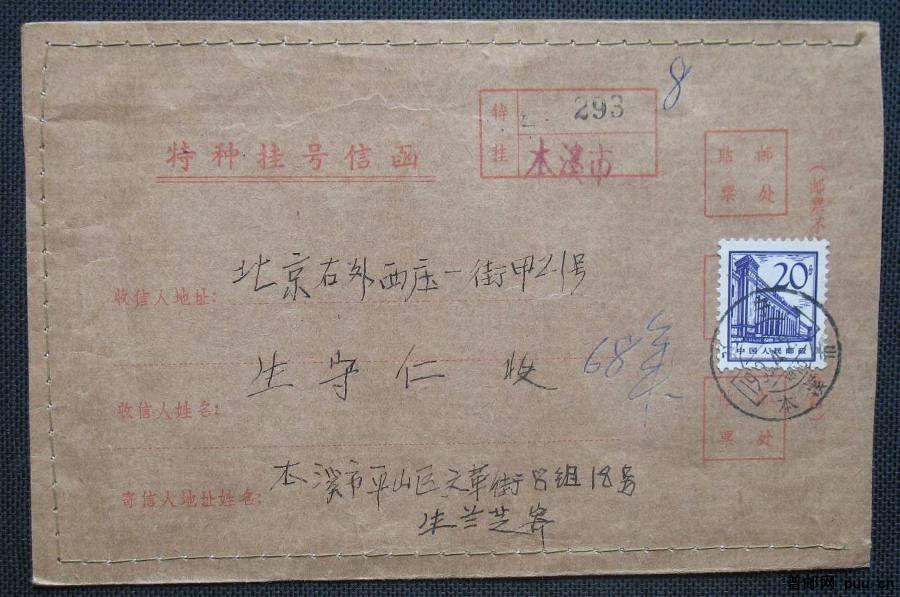 8
特 293
挂 本溪市
特种挂号信函
贴 邮
票 处
(邮票不
20分
中国人民邮政
收信人地址:
北京右外西庄一街甲21号
生守仁 收
68年
收信人姓名:
票 处
本
寄信人地址姓名:
本溪市平山区文革街8组18号
生兰芝寄
普邮网 puu.cn